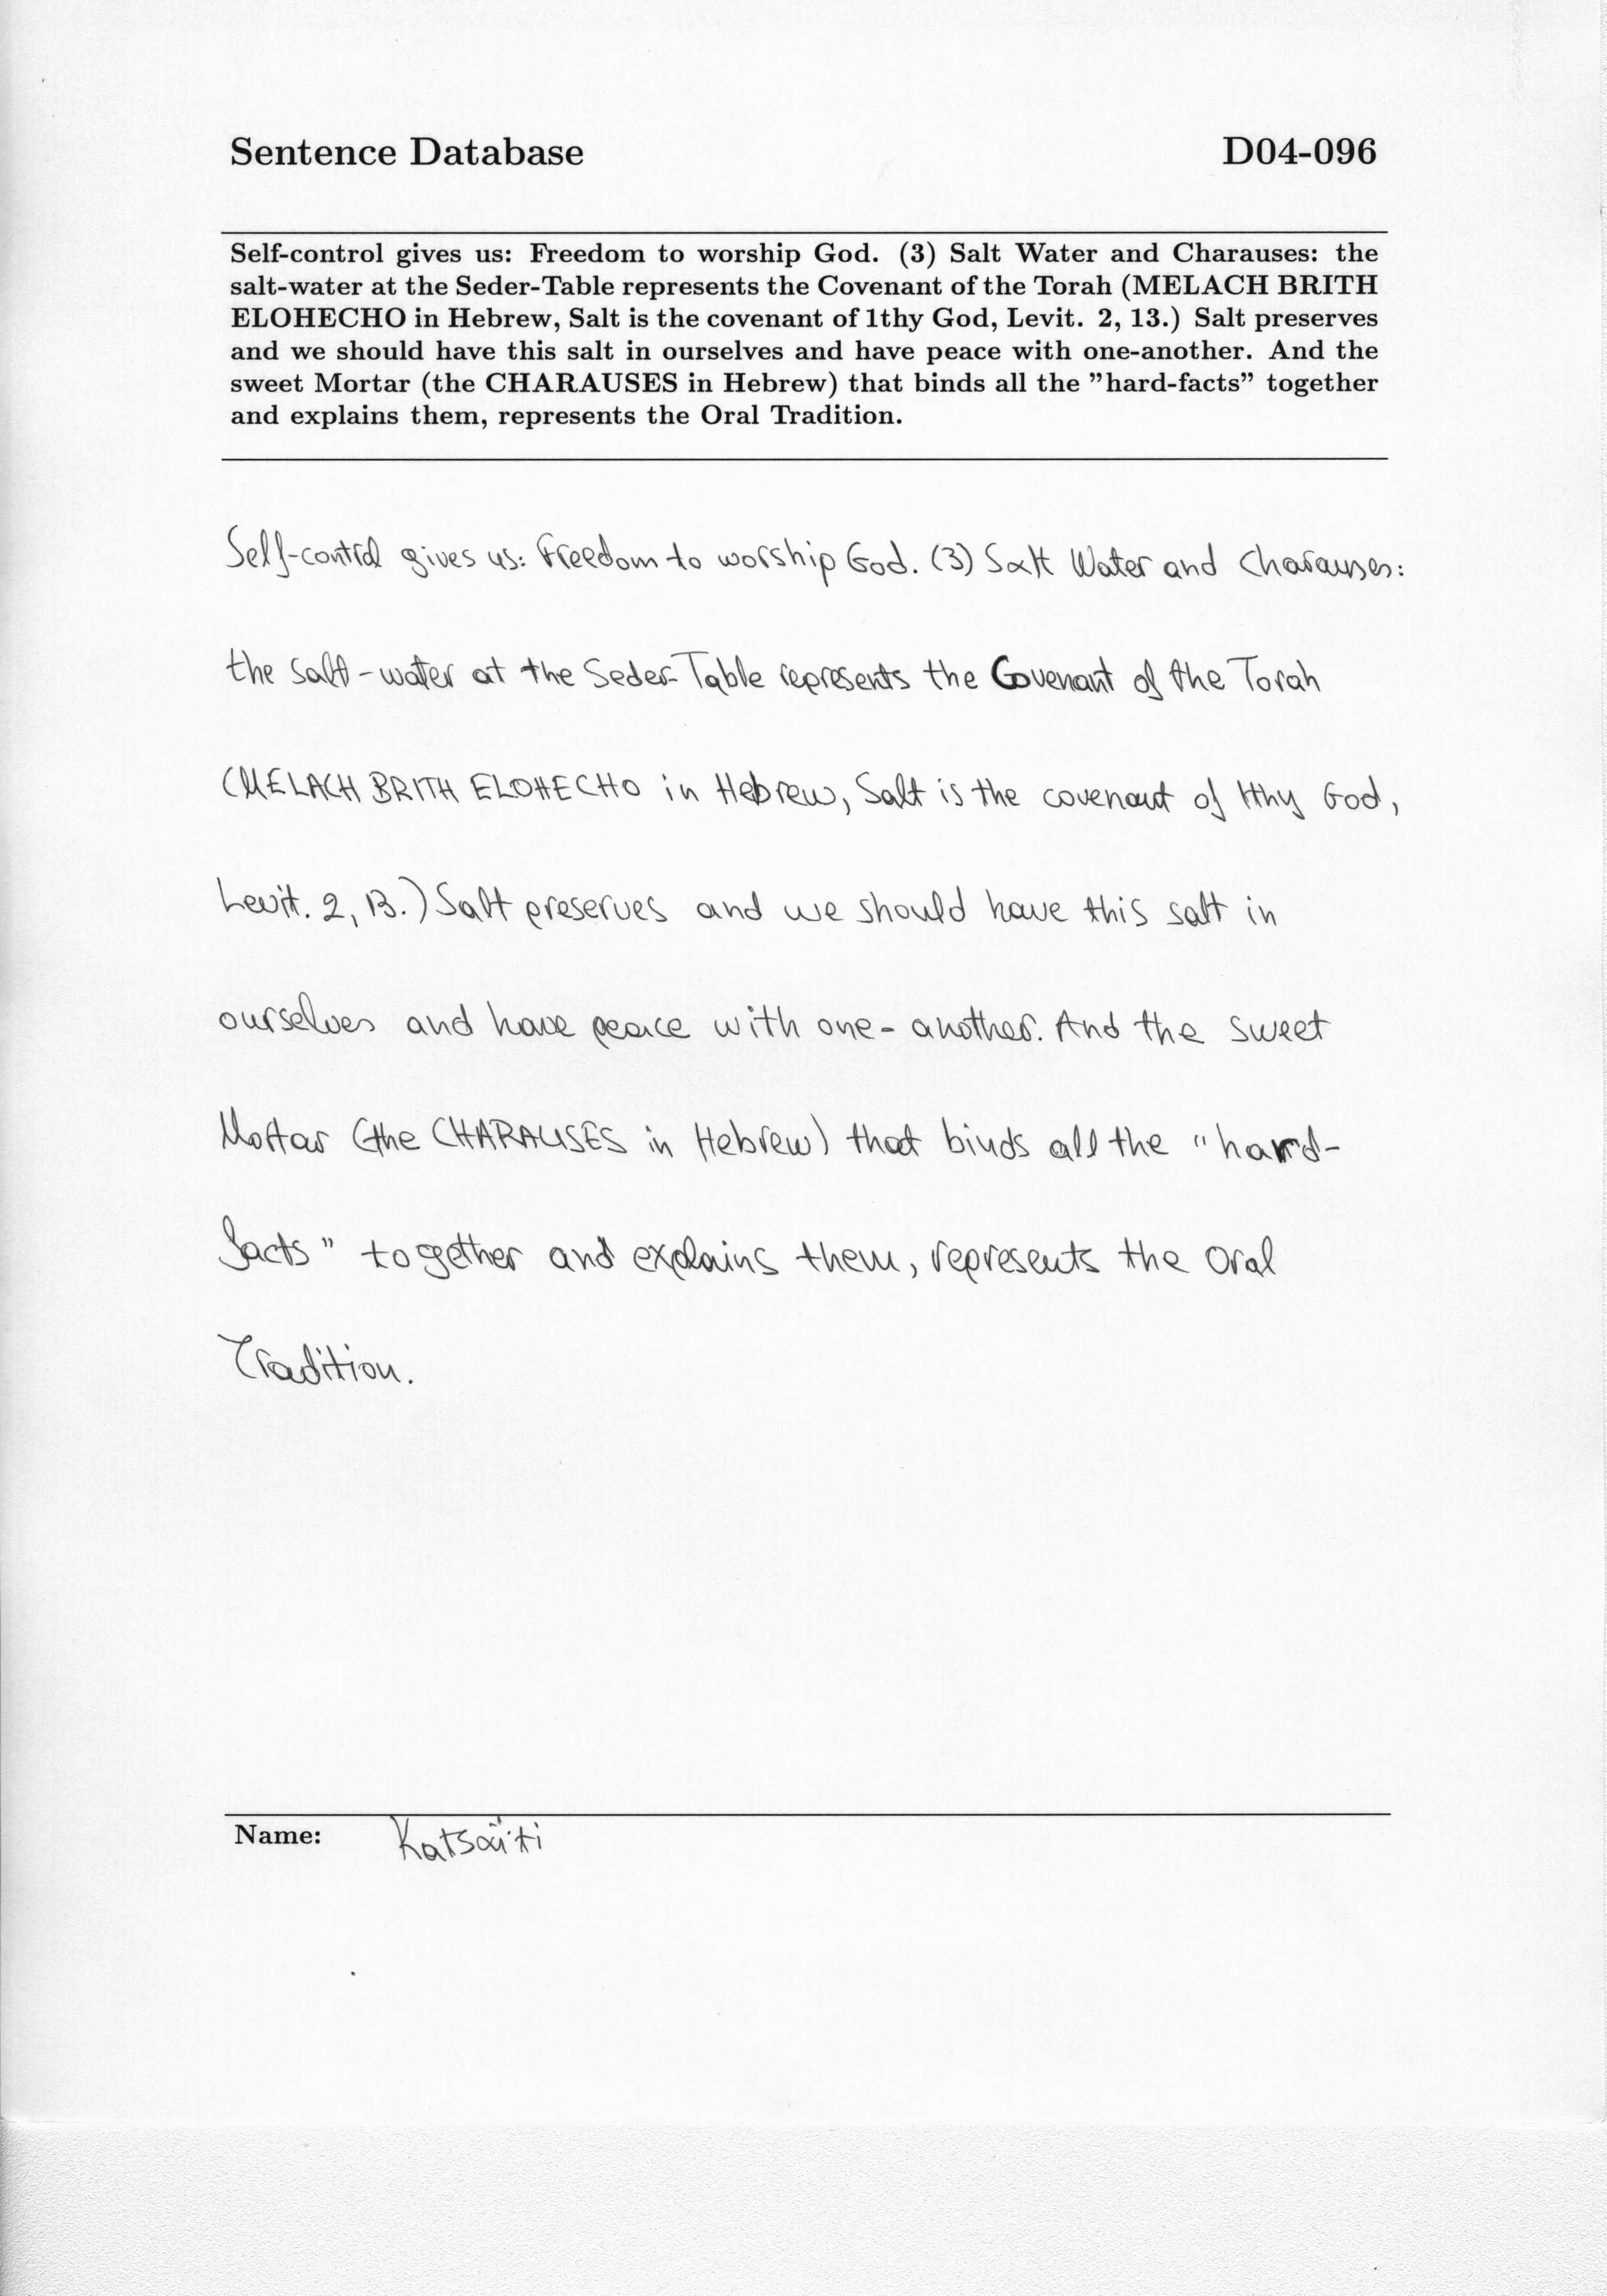 Sentence Database D04-096
Self-control gives us: Freedom to worship God. (3) Salt Water and Charauses: the
salt-water at the Seder-Table represents the Covenant of the Torah (MELACH BRITH
ELOHECHO in Hebrew, Salt is the covenant of 1thy God, Levit. 2, 13.) Salt preserves
and we should have this salt in ourselves and have peace with one-another. And the
sweet Mortar (the CHARAUSES in Hebrew) that binds all the ”hard-facts” together
and explains them, represents the Oral Tradition.
Self-control gives us: Freedom to worship God. (3) Salt Water and Charauses:
the salt-water at the Seder-Table represents the Covenant of the Torah
(MELACH BRITH ELOHECHO in Hebrew, Salt is the covenant of 1thy God,
Levit. 2, 13.) Salt preserves and we should have this salt in
ourselves and have peace with one-another. And the sweet
Mortar (the CHARAUSES in Hebrew) that binds all the "hard-
facts" together and explains them, represents the Oral
Tradition.
Name: Katsaïti